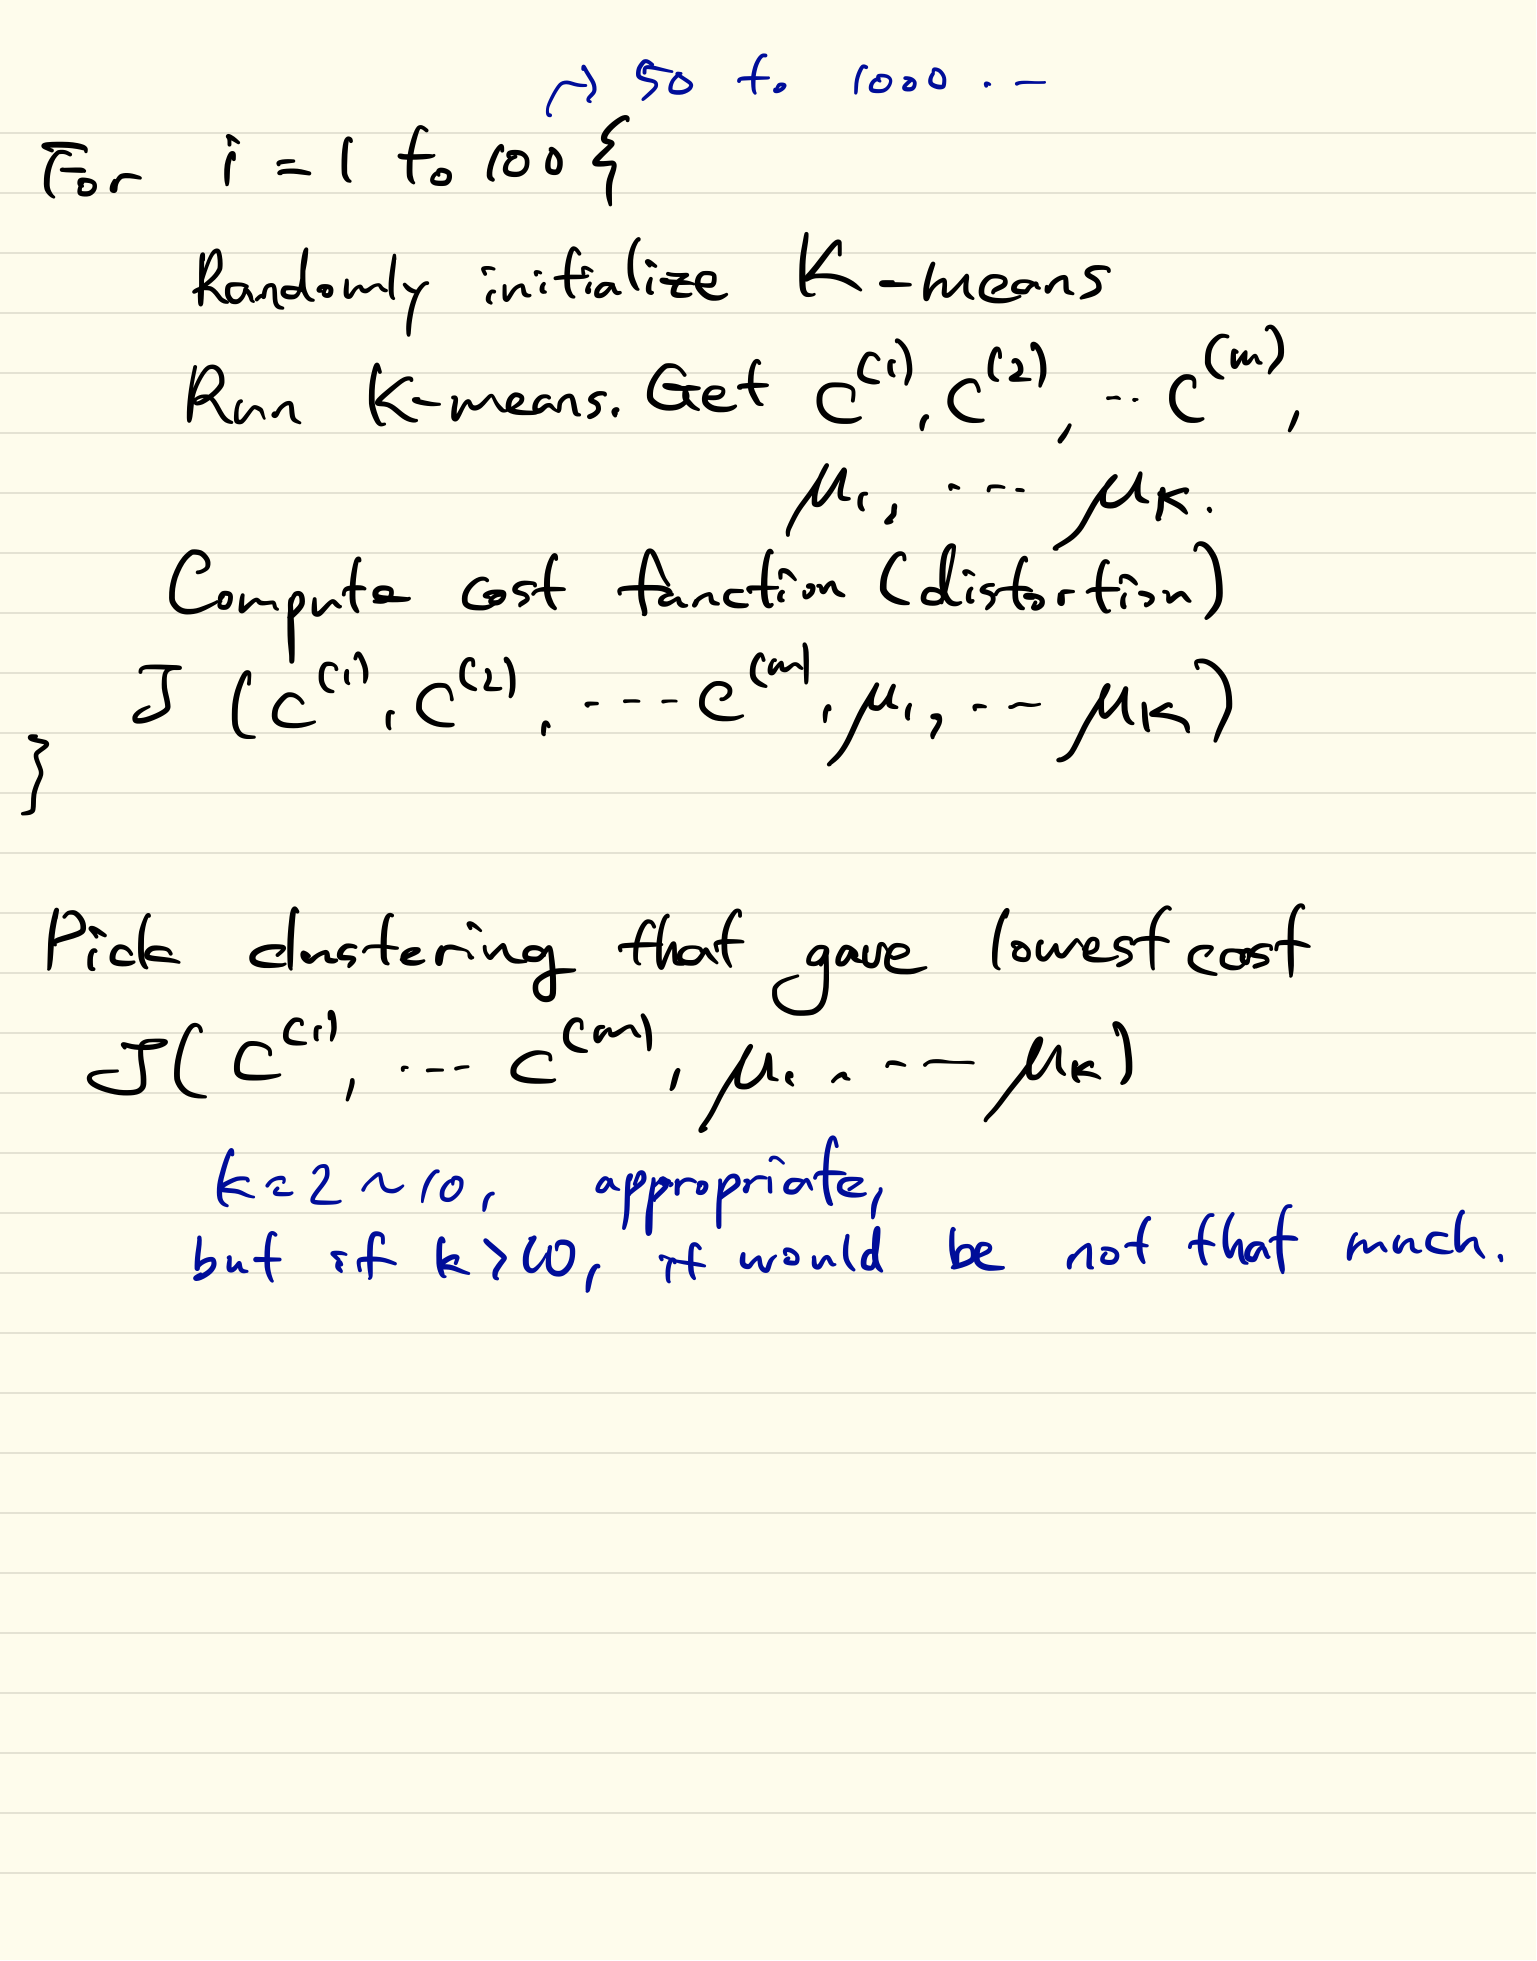 → 50 to 1000 . –
For i = 1 to 100 {
Randomly initialize K-means
Run K-means. Get c⁽¹⁾, c⁽²⁾, ... c⁽ᵐ⁾,
μ₁, ... μ_K.
Compute cost function (distortion)
J (c⁽¹⁾, c⁽²⁾, ... c⁽ᵐ⁾, μ₁, ... μ_K)
}
Pick clustering that gave lowest cost
J(c⁽¹⁾, ... c⁽ᵐ⁾, μ₁, ... μ_K)
k=2~10, appropriate,
but if k> , it would be not that much.